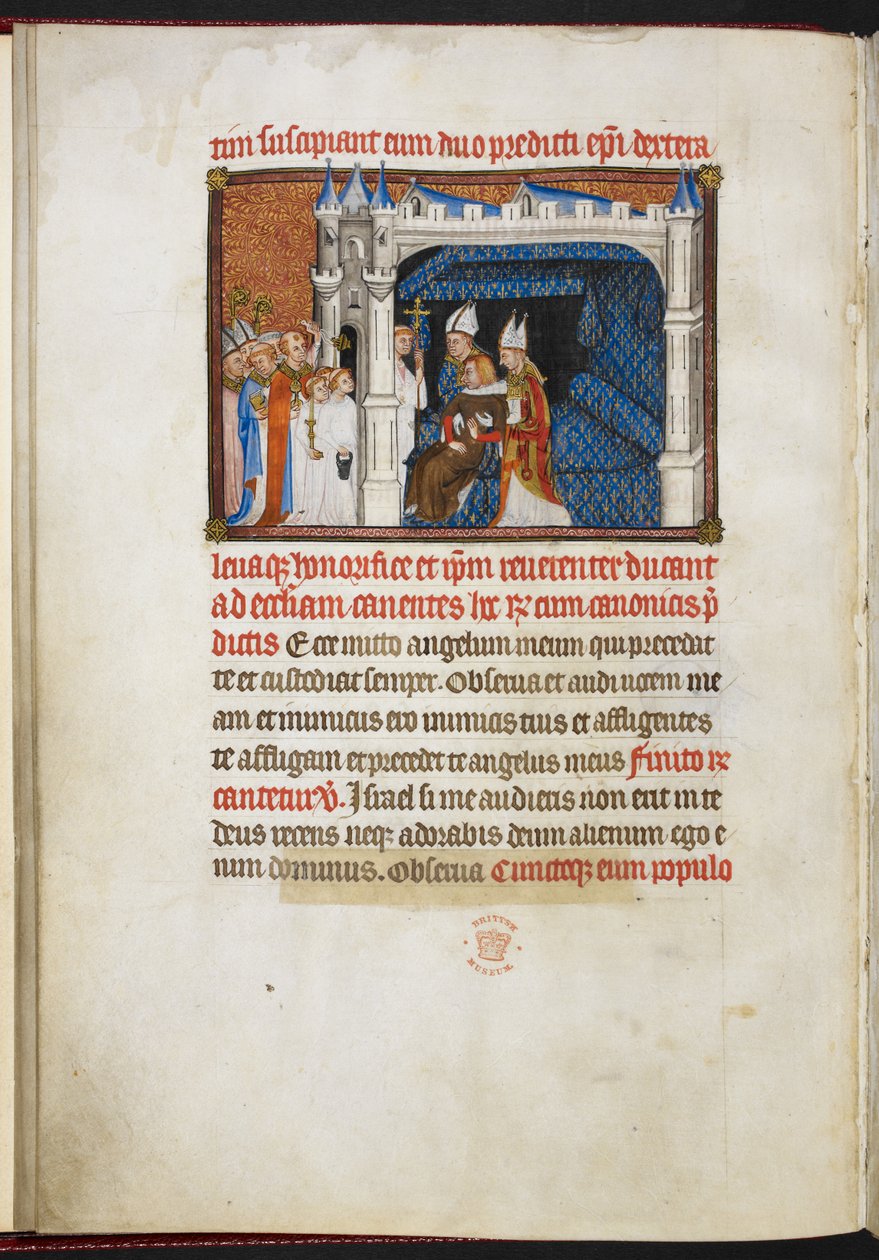 tim suscipiant eum duo predicti ep̄i dextera
levaqꝫ honorifice et ip̄m reverenter ducant
ad eccl̄iam canentes hoc ꝶ cum canonicis p̄
dictis Ecce mitto angelum meum qui precedat
te et custodiat semper. Observa et audi vocem me
am et inimicus ero inimicis tuis et affligentes
te affligam et precedet te angelus meus Finito ꝶ
cantetur ℣. Israel si me audieris non erit in te
deus recens neqꝫ adorabis deum alienum ego e
nim dominus. Observa Cunctoqꝫ eum populo
BRITISH
MUSEUM